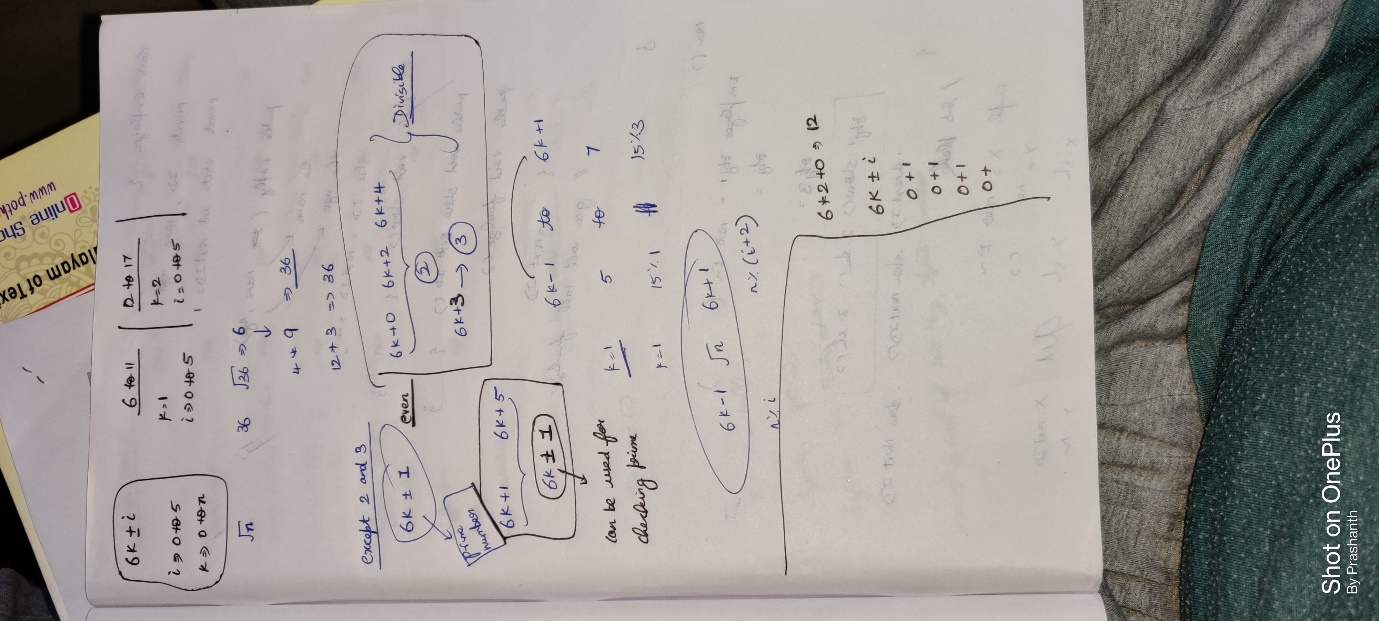 6K ± i
i => 0 to 5
K => 0 to n
6 to 11
K=1
i => 0 to 5
12 to 17
K=2
i = 0 to 5
√n
36 √36 => 6
4 * 9 => 36
12 + 3 => 36
except 2 and 3
6K ± 1
prime number
even
6K+0 6K+2 6K+4
2
6K+3 → 3
Divisible
6K+1 6K+5
6K ± 1
can be used for
checking prime
6K-1 to 6K+1
K=1 5 to 7
K=1 15%1 15%3
6K-1 √n 6K+1
n%i n%(i+2)
6*2+0 => 12
6K ± i
0+1
0+1
0+1
0+
Online Sho
www.poth
layam of Tex
Shot on OnePlus
By Prashanth